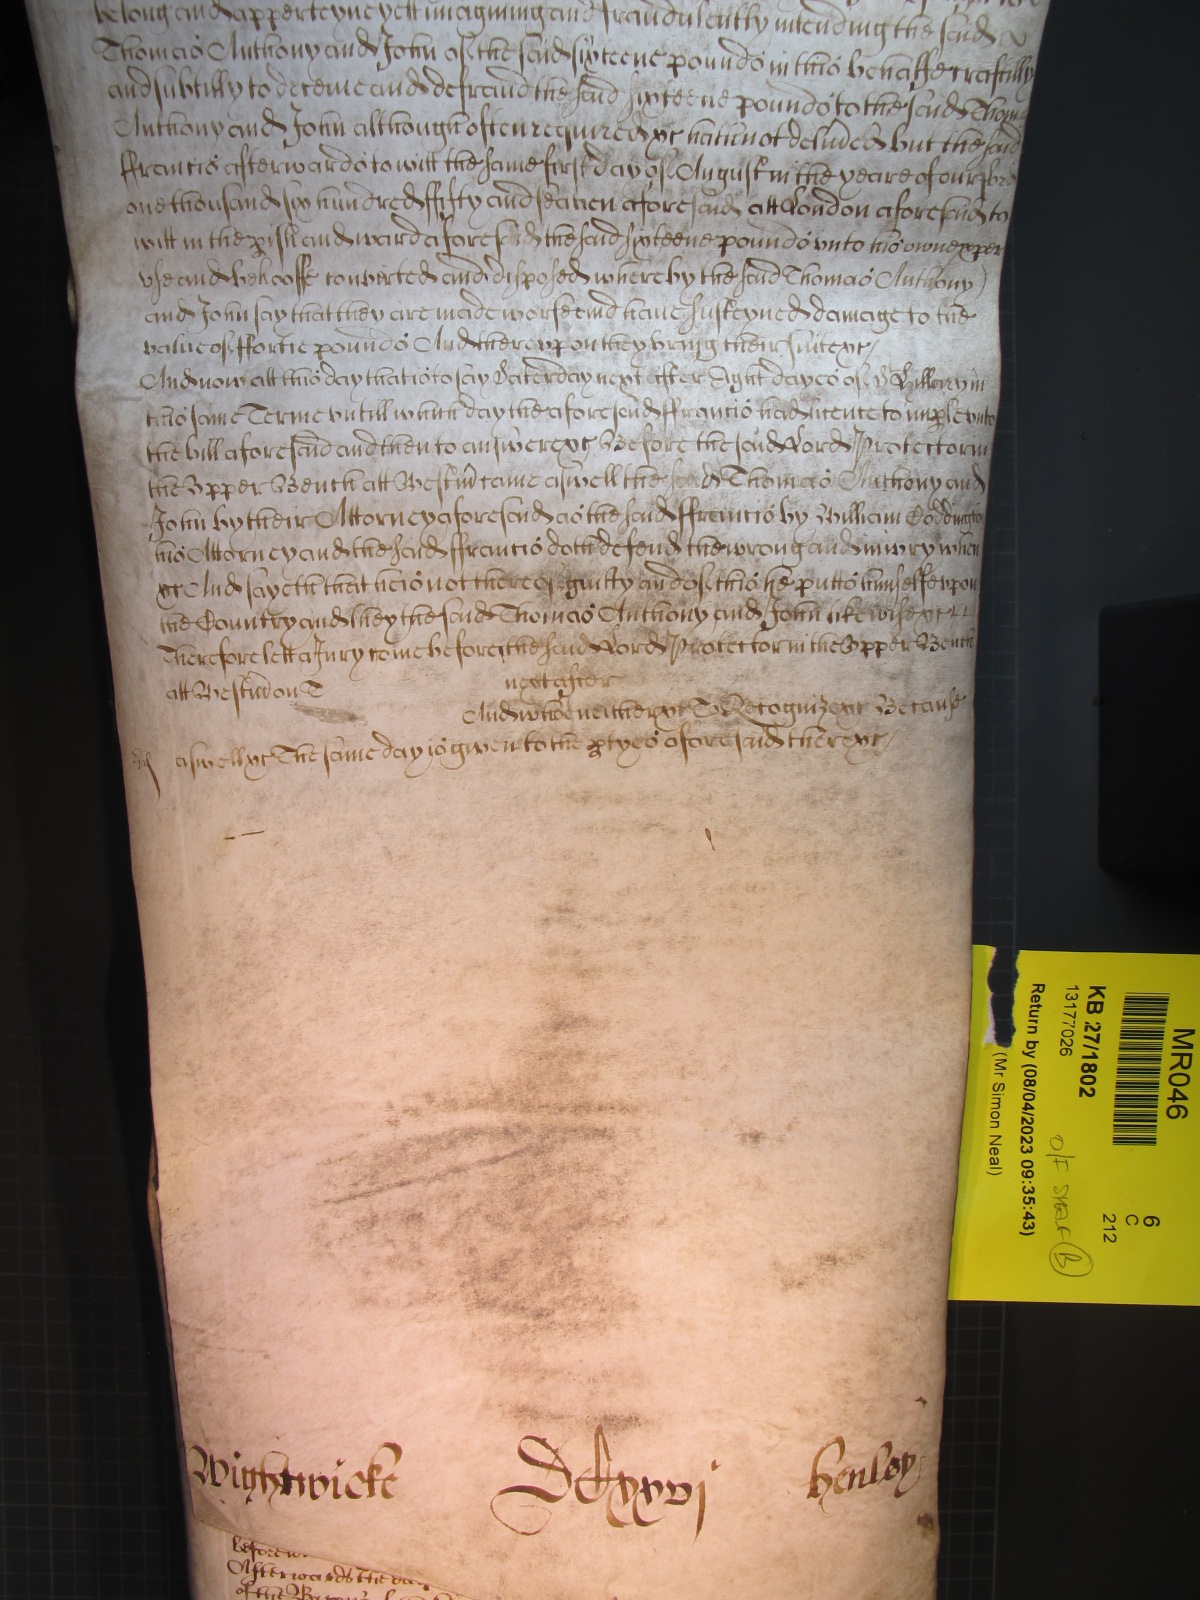 belong and apperteyne yett imagining and fraudulently intending the said
Thomas Anthony and John of the said sixteene pounds in this behalfe craftilly
and subtilly to deceive and defraud the said sixteene pounds to the said Thomas
Anthony and John although often required &c hath not but the said
ffrancis afterwards to witt the same first day of August in the yeare of our Lord
one thousand six hundred ffifty and seaven aforesaid att London aforesaid to
witt in the pish and ward aforesaid the said sixteene pounds unto his owne pper
use and behooffe converted and disposed whereby the said Thomas Anthony
and John say that they are made worse and have susteyned damage to the
value of ffortie pounds And thereupon they bring their suite &c/
And now att this day that is to say Saterday next after Eight dayes of St Hillary in
this same Terme untill which day the aforesaid ffrancis had licence to imple unto
the bill aforesaid and then to answere &c Before the said Lord Protector in
the Upper Bench att Westmr came aswell the said Thomas Anthony and
John by their Attorney aforesaid as the said ffrancis by William Coddington
his Attorney and the said ffrancis doth defend the wrong and iniury when
&c And sayeth that he is not thereof guilty and of this he putts himselfe upon
the Country and they the said Thomas Anthony and John likewise &c
Therefore lett a Jury come before the said Lord Protector in the Upper Bench
att Westmr on T next after
And who neither &c To Recognize &c Because
aswell &c The same day is given to the ptyes aforesaid there &c/
Wightwicke Dclxxvi Henley
before
Afterwards the day
of the
MR046
6
C
212
KB 27/1802
13177026
O/F SHELF (B)
Return by (08/04/2023 09:35:43)
(Mr Simon Neal)